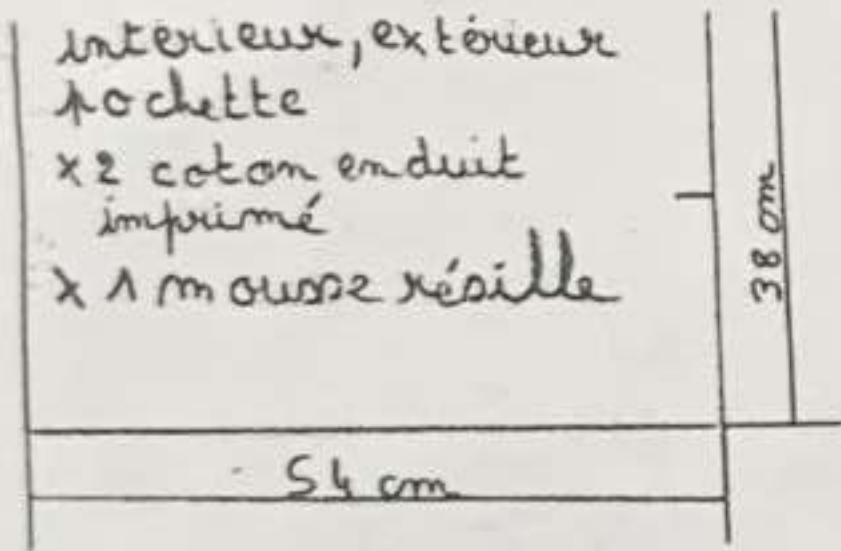 intérieur, extérieur
pochette
x2 coton enduit
imprimé
x 1 mousse résille
38 cm
54 cm